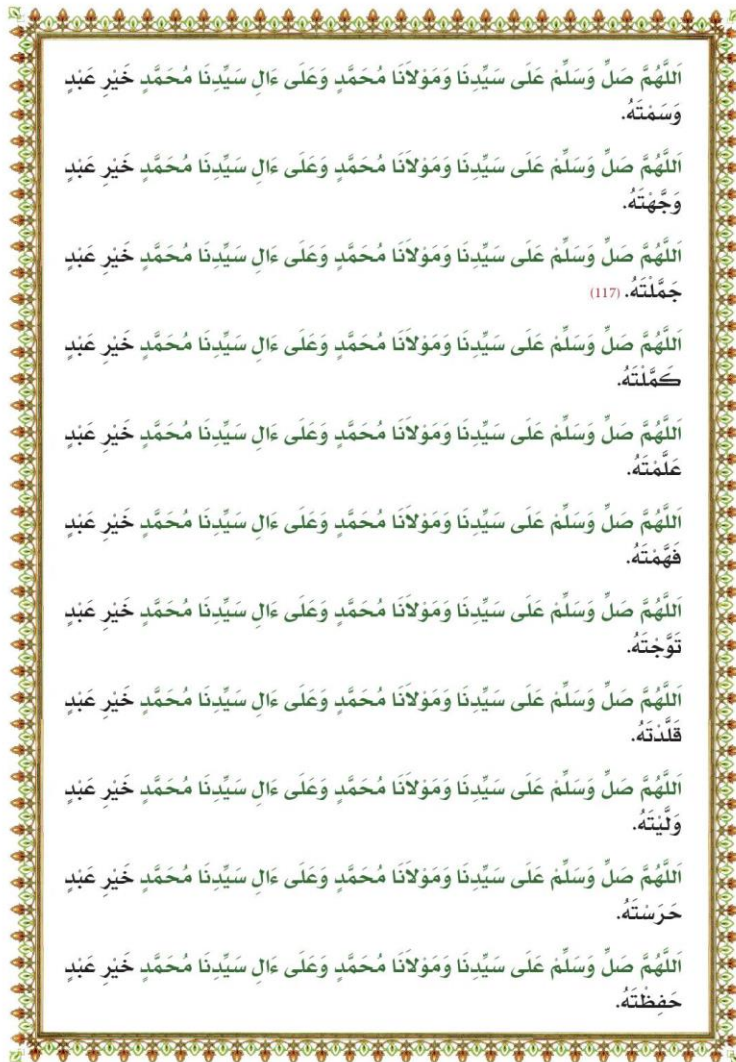 اَللَّهُمَّ صَلِّ وَسَلِّمْ عَلَى سَيِّدِنَا وَمَوْلَانَا مُحَمَّدٍ وَعَلَى ءَالِ سَيِّدِنَا مُحَمَّدٍ خَيْرِ عَبْدٍ
وَسَمْتَهُ.
اَللَّهُمَّ صَلِّ وَسَلِّمْ عَلَى سَيِّدِنَا وَمَوْلَانَا مُحَمَّدٍ وَعَلَى ءَالِ سَيِّدِنَا مُحَمَّدٍ خَيْرِ عَبْدٍ
وَجَّهْتَهُ.
اَللَّهُمَّ صَلِّ وَسَلِّمْ عَلَى سَيِّدِنَا وَمَوْلَانَا مُحَمَّدٍ وَعَلَى ءَالِ سَيِّدِنَا مُحَمَّدٍ خَيْرِ عَبْدٍ
جَمَّلْتَهُ. (117)
اَللَّهُمَّ صَلِّ وَسَلِّمْ عَلَى سَيِّدِنَا وَمَوْلَانَا مُحَمَّدٍ وَعَلَى ءَالِ سَيِّدِنَا مُحَمَّدٍ خَيْرِ عَبْدٍ
كَمَّلْتَهُ.
اَللَّهُمَّ صَلِّ وَسَلِّمْ عَلَى سَيِّدِنَا وَمَوْلَانَا مُحَمَّدٍ وَعَلَى ءَالِ سَيِّدِنَا مُحَمَّدٍ خَيْرِ عَبْدٍ
عَلَّمْتَهُ.
اَللَّهُمَّ صَلِّ وَسَلِّمْ عَلَى سَيِّدِنَا وَمَوْلَانَا مُحَمَّدٍ وَعَلَى ءَالِ سَيِّدِنَا مُحَمَّدٍ خَيْرِ عَبْدٍ
فَهَّمْتَهُ.
اَللَّهُمَّ صَلِّ وَسَلِّمْ عَلَى سَيِّدِنَا وَمَوْلَانَا مُحَمَّدٍ وَعَلَى ءَالِ سَيِّدِنَا مُحَمَّدٍ خَيْرِ عَبْدٍ
تَوَّجْتَهُ.
اَللَّهُمَّ صَلِّ وَسَلِّمْ عَلَى سَيِّدِنَا وَمَوْلَانَا مُحَمَّدٍ وَعَلَى ءَالِ سَيِّدِنَا مُحَمَّدٍ خَيْرِ عَبْدٍ
قَلَّدْتَهُ.
اَللَّهُمَّ صَلِّ وَسَلِّمْ عَلَى سَيِّدِنَا وَمَوْلَانَا مُحَمَّدٍ وَعَلَى ءَالِ سَيِّدِنَا مُحَمَّدٍ خَيْرِ عَبْدٍ
وَلَّيْتَهُ.
اَللَّهُمَّ صَلِّ وَسَلِّمْ عَلَى سَيِّدِنَا وَمَوْلَانَا مُحَمَّدٍ وَعَلَى ءَالِ سَيِّدِنَا مُحَمَّدٍ خَيْرِ عَبْدٍ
حَرَسْتَهُ.
اَللَّهُمَّ صَلِّ وَسَلِّمْ عَلَى سَيِّدِنَا وَمَوْلَانَا مُحَمَّدٍ وَعَلَى ءَالِ سَيِّدِنَا مُحَمَّدٍ خَيْرِ عَبْدٍ
حَفِظْتَهُ.